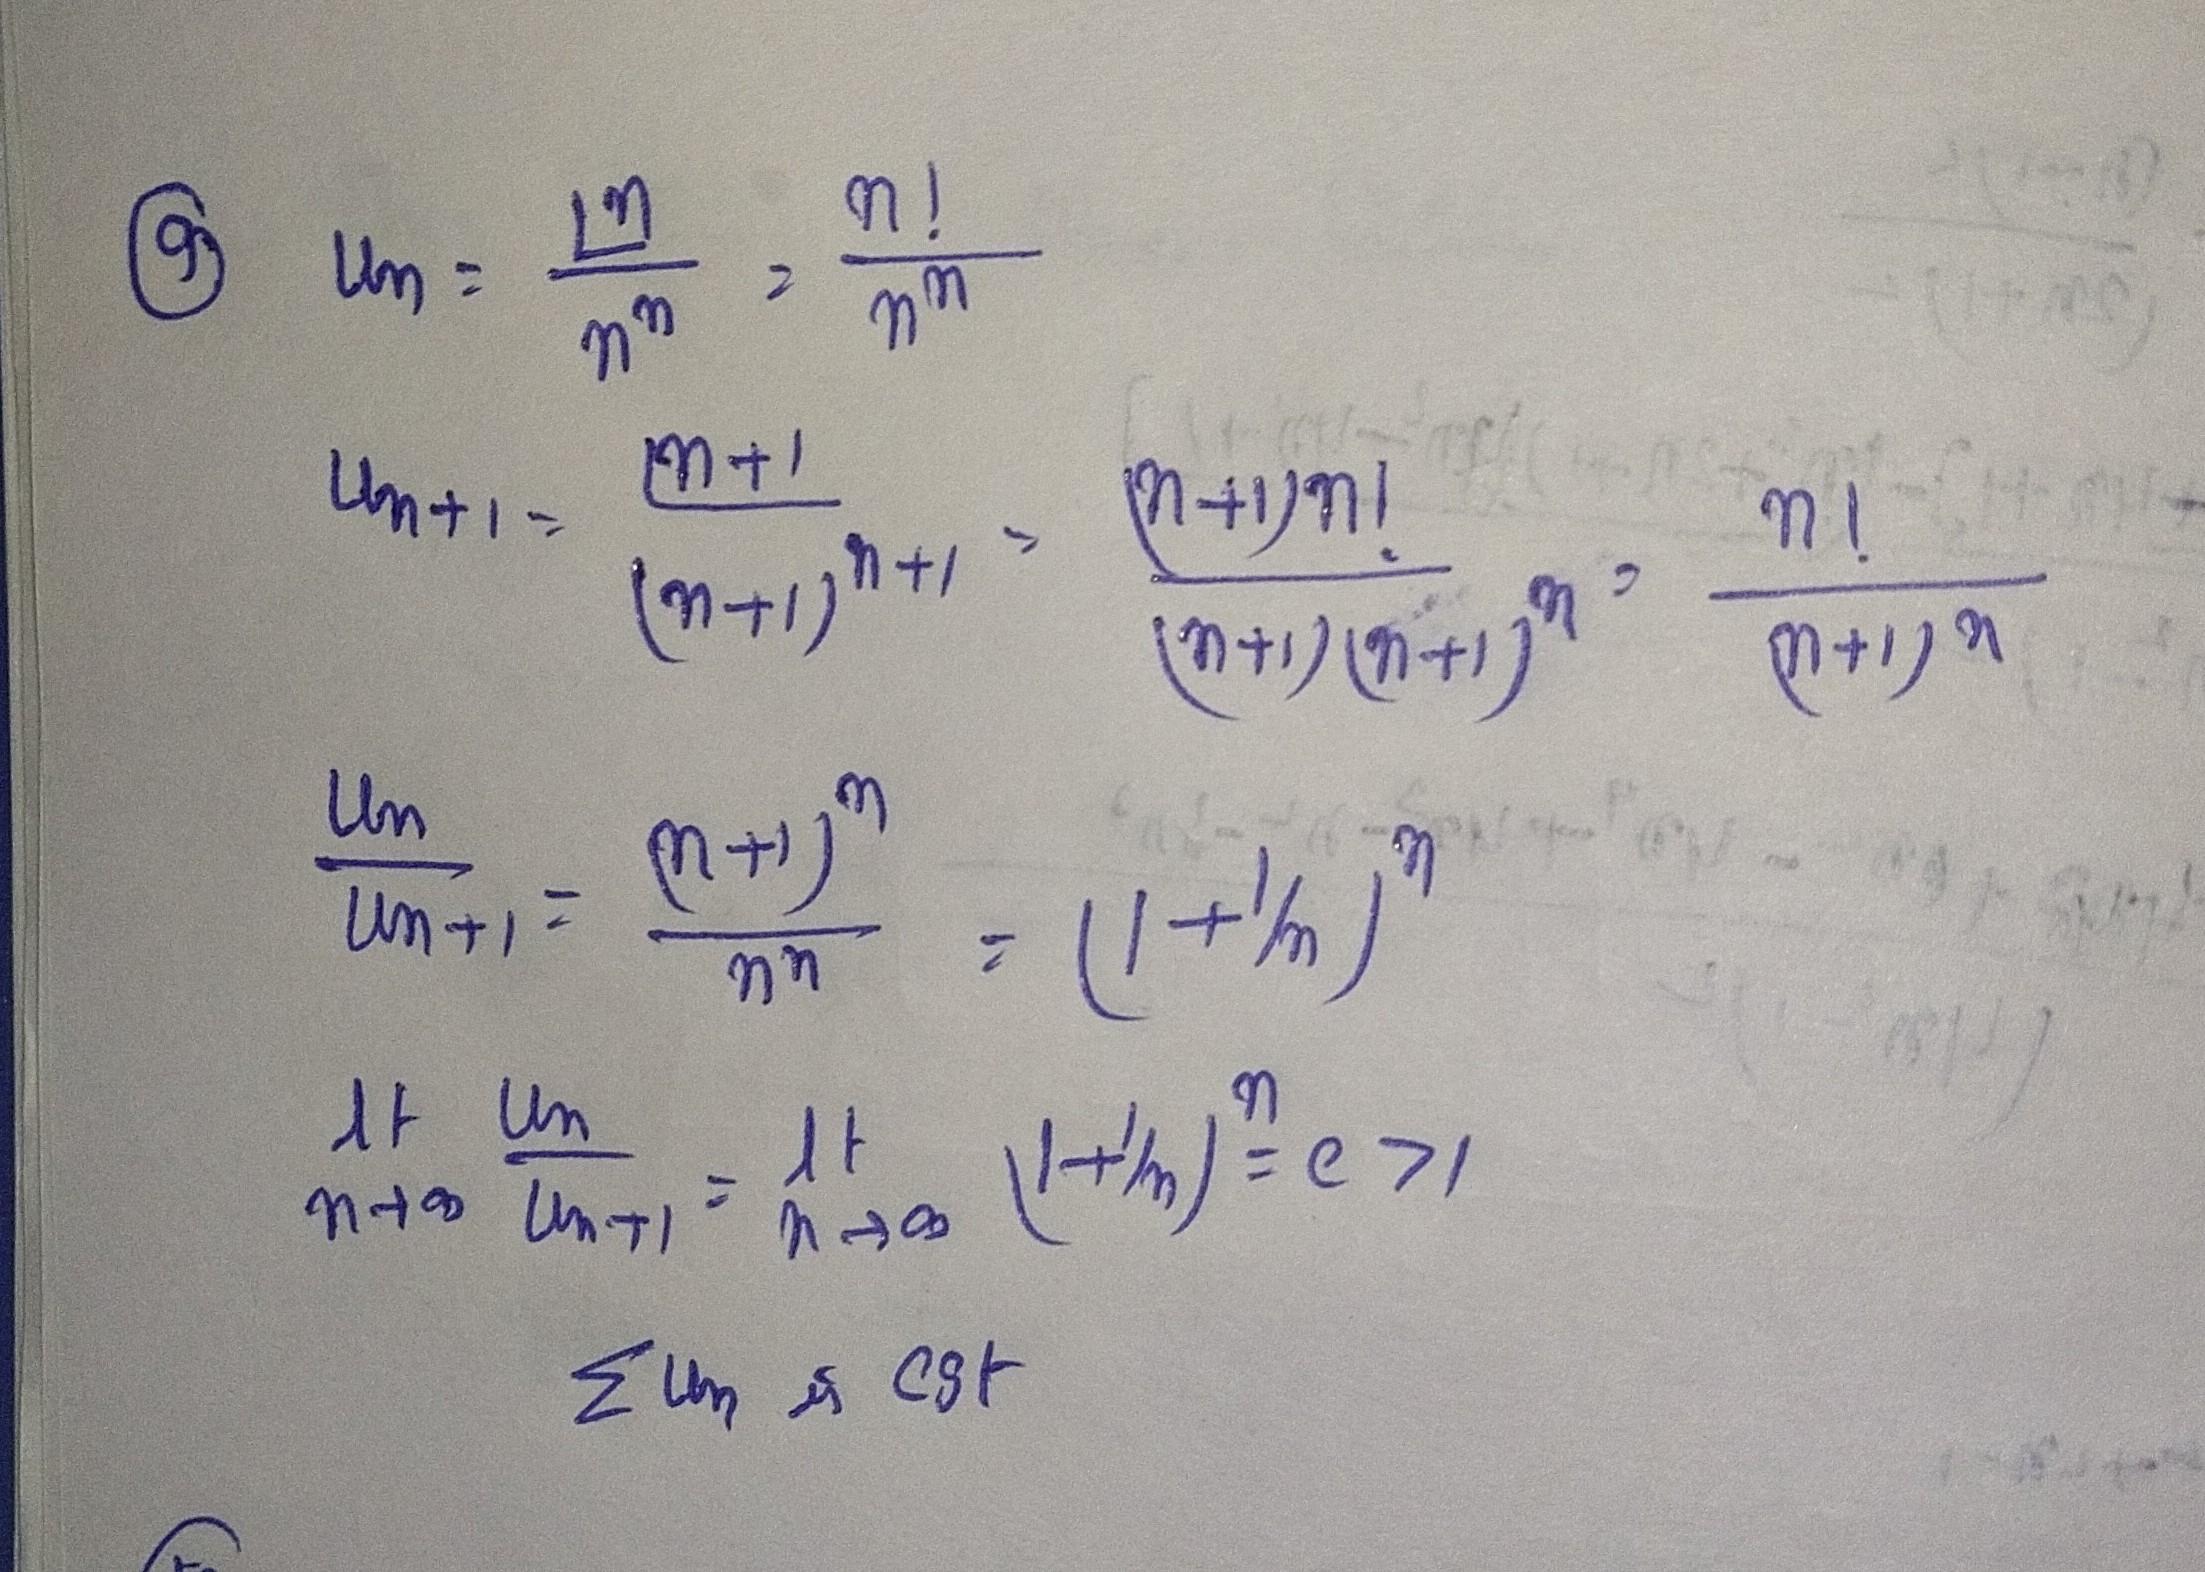 ⑨ Un = ⌊n / n^n = n! / n^n
Un+1 = ⌊n+1 / (n+1)^n+1 = (n+1)n! / (n+1)(n+1)^n = n! / (n+1)^n
Un / Un+1 = (n+1)^n / n^n = (1+1/n)^n
lt n→∞ Un / Un+1 = lt n→∞ (1+1/n)^n = e >1
Σ Un is cgt